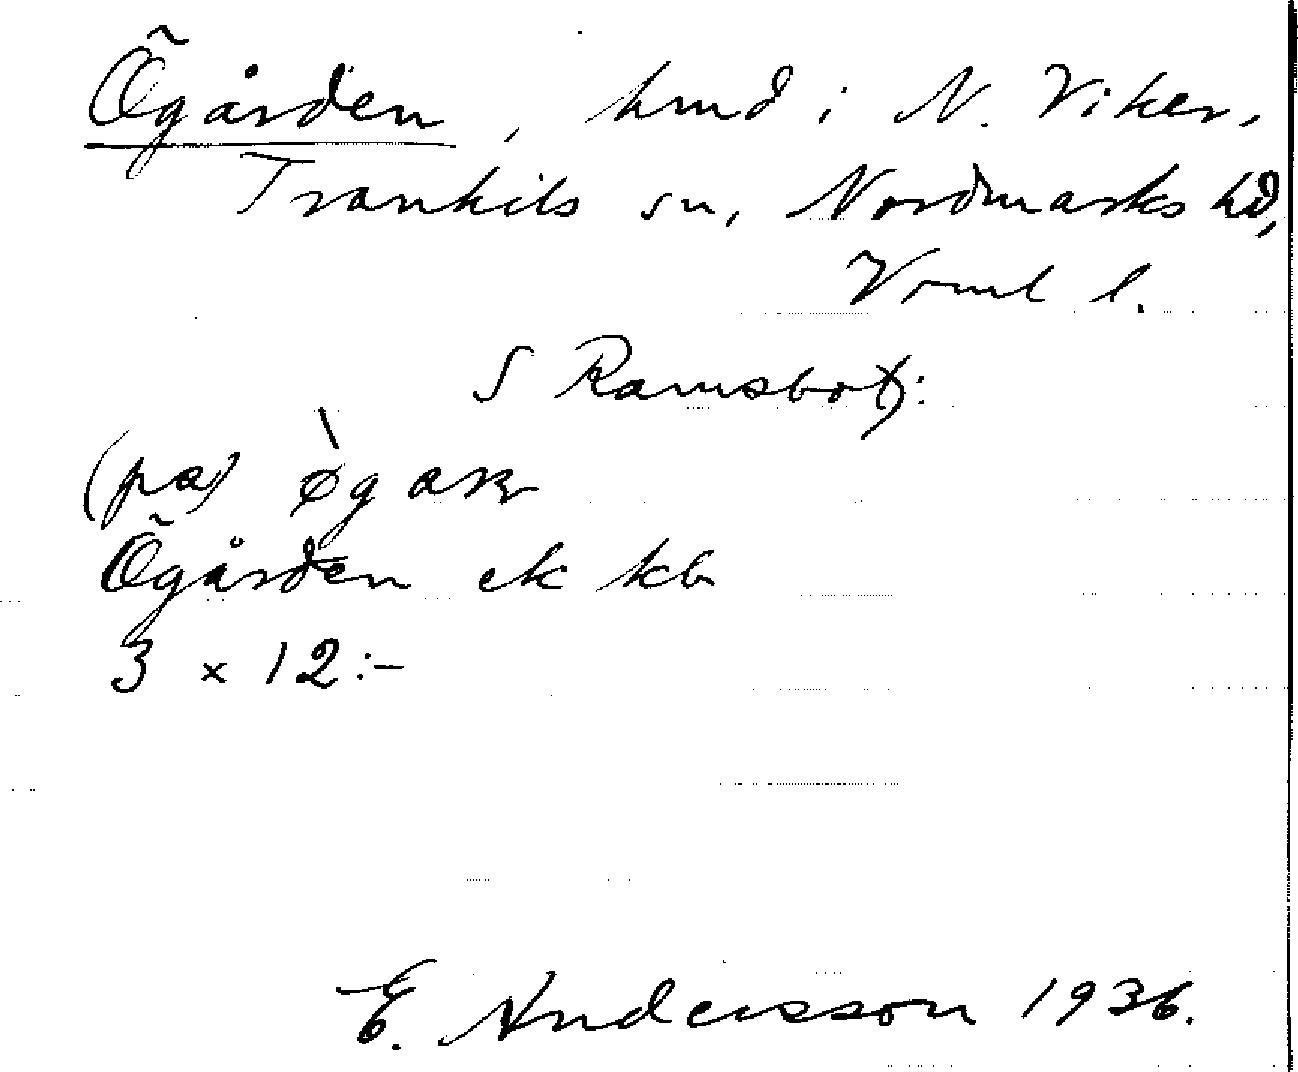 Ögården, hmd i N. Viker,
Trankils sn, Nordmarks hd,
Vrml l.
S Ramsbot):
(pa)
Ögården ek kb
3 x 12:-
E. Andersson 1936.